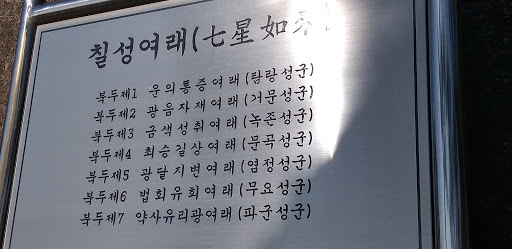 칠성여래(七星如來)
북두제1 운의통증여래(탐랑성군)
북두제2 광음자재여래(거문성군)
북두제3 금색성취여래(녹존성군)
북두제4 최승길상여래(문곡성군)
북두제5 광달지변여래(염정성군)
북두제6 법회유회여래(무요성군)
북두제7 약사유리광여래(파군성군)